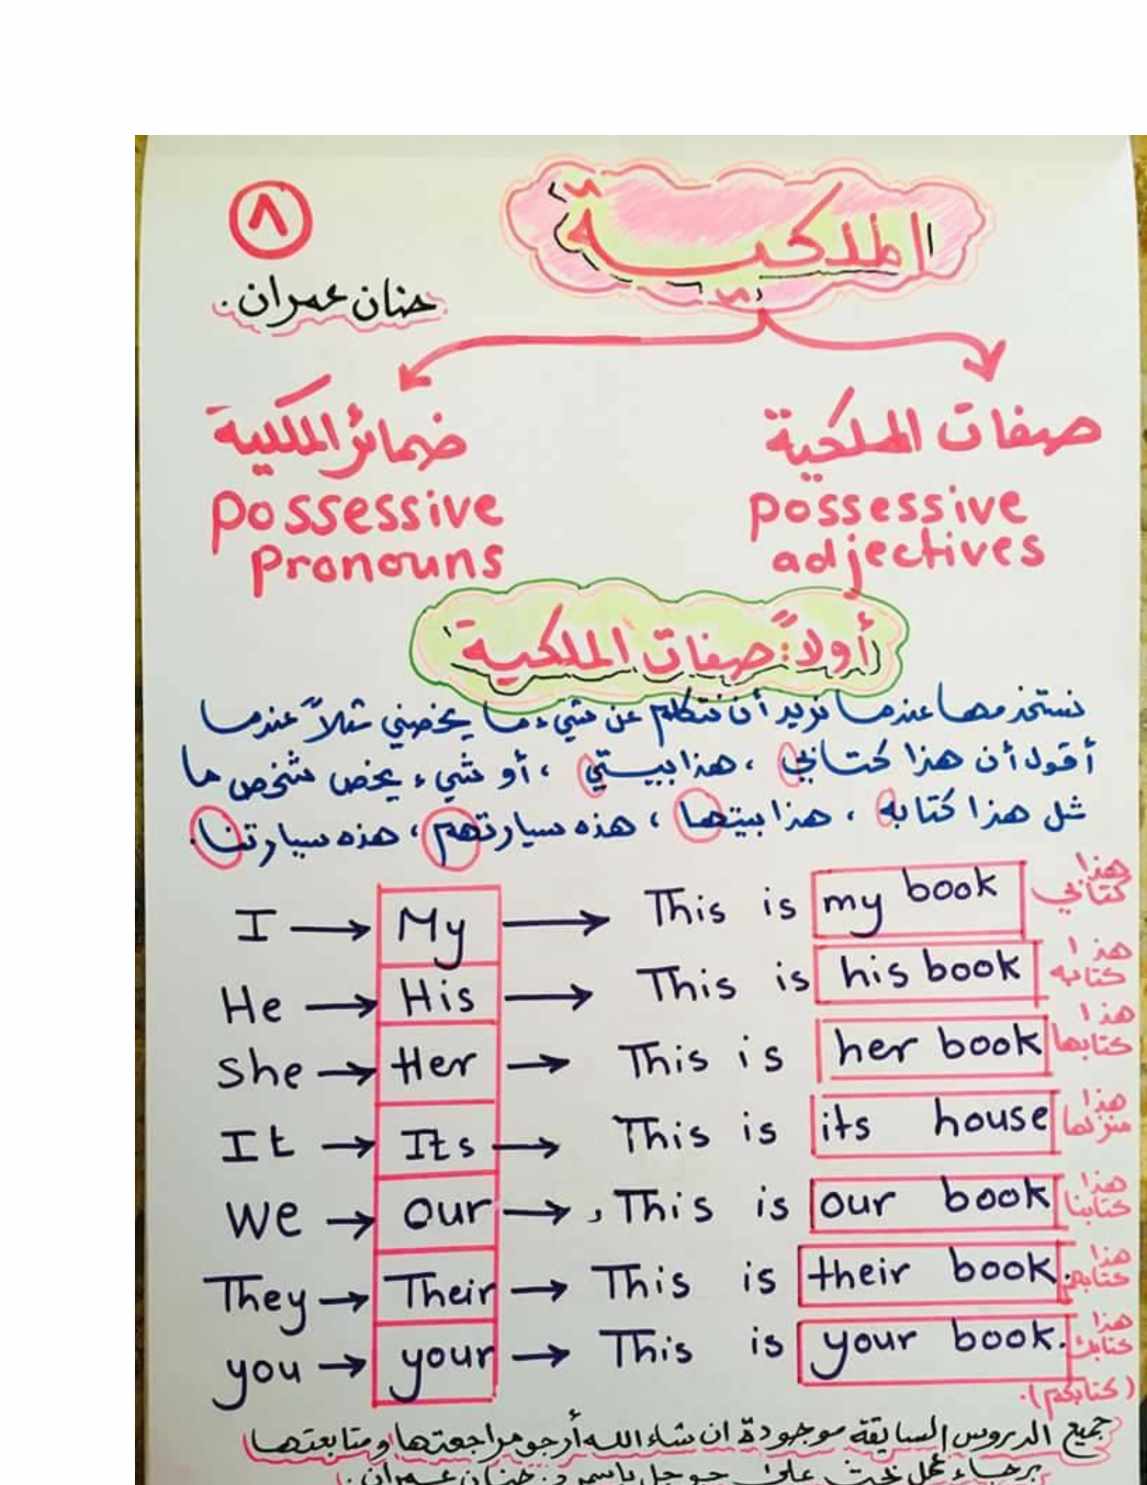 الملكيّة
٨
حنان عمران.
صفات الملكية
possessive
adjectives
ضمائر الملكية
Possessive
Pronouns
أولاً: صفات الملكية
نستخدمها عندما نريد أن نتكلم عن شيء ما يخصني مثلاً عندما
أقول أن هذا كتابي ، هذا بيتي ، أو شيء يخص شخص ما
مثل هذا كتابه ، هذا بيتها ، هذه سيارتهم ، هذه سيارتنا.
I → My → This is my book هذا كتابي
He → His → This is his book هذا كتابه
She → Her → This is her book هذا كتابها
It → Its → This is its house هذا منزلها
We → Our → This is our book هذا كتابنا
They → Their → This is their book. هذا كتابهم
you → your → This is your book. هذا كتابك
(كتابكم).
جميع الدروس السابقة موجودة ان شاء الله أرجو مراجعتها ومتابعتها
برجاء عمل بحث على جوجل باسم د: حنان عمران.